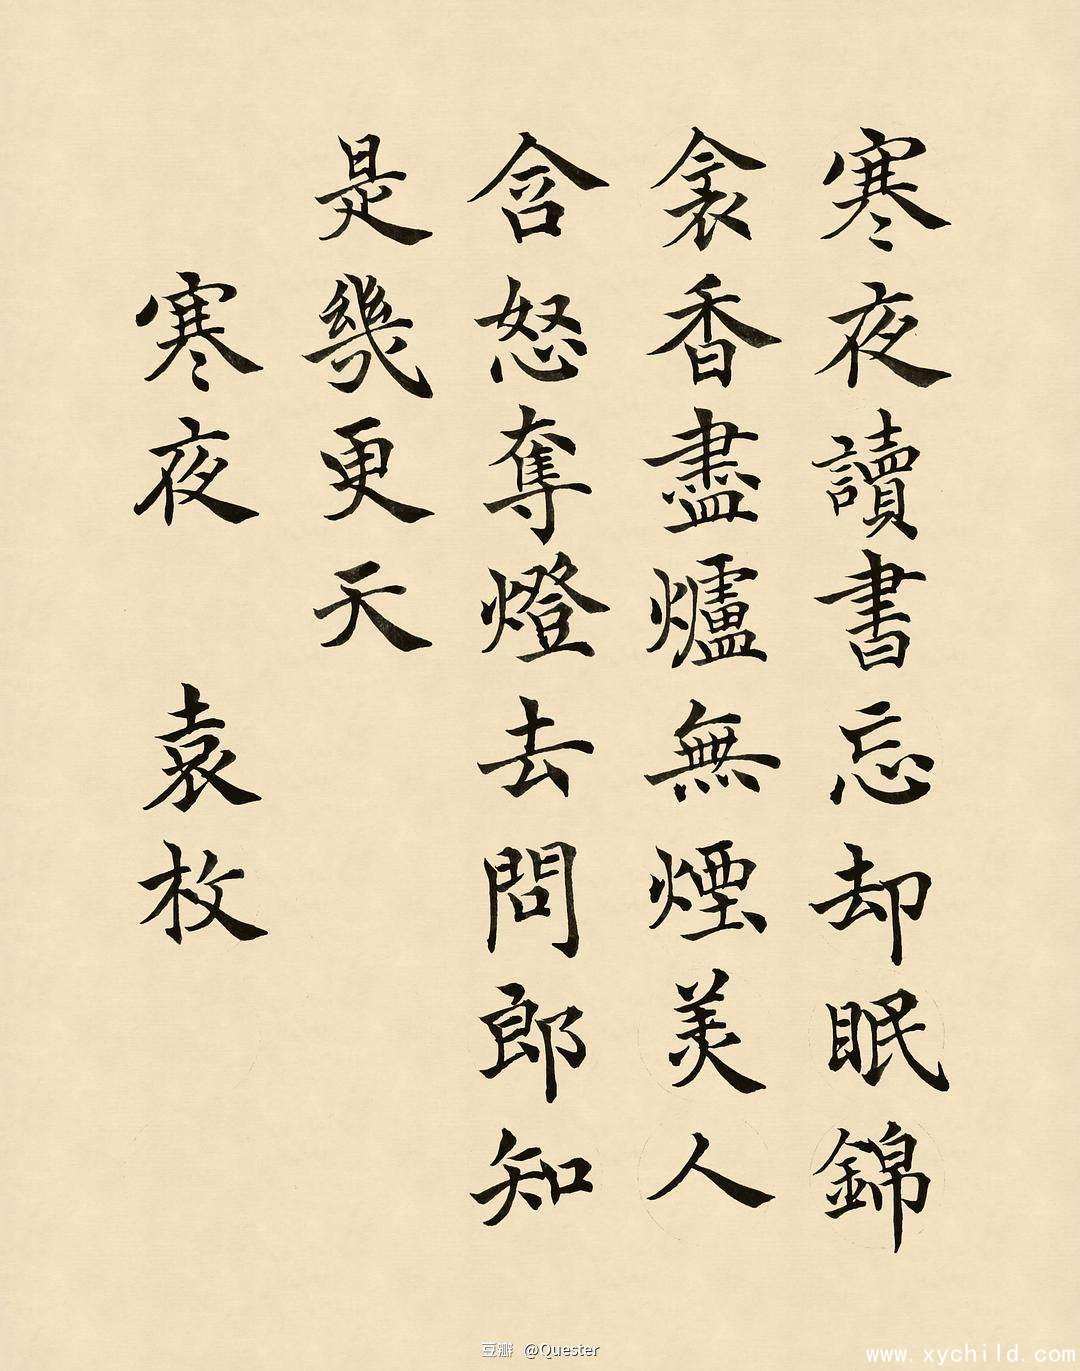 寒夜讀書忘却眠錦
衾香盡爐無煙美人
含怒奪燈去問郎知
是幾更天
寒夜 袁枚
豆瓣 @Quester
www.xychild.com